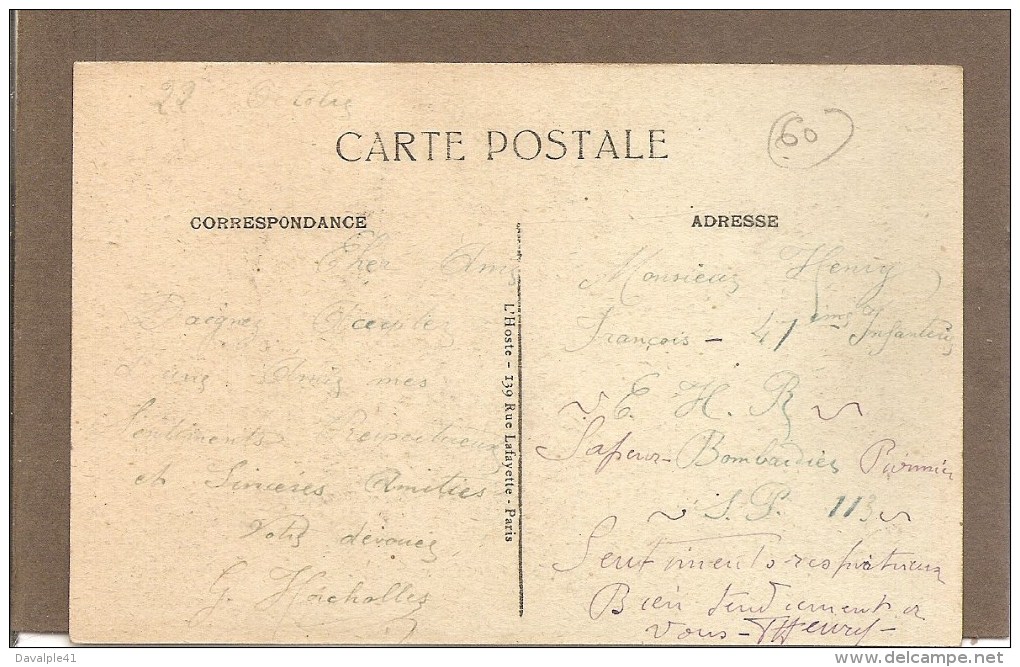 22 Octobre
60
CARTE POSTALE
CORRESPONDANCE
ADRESSE
Cher Ami
Daignez Accepter
mes
Sentiments Respectueux
et Sincères Amitiés
Votre dévoué
G.
L'Hoste - 139 Rue Lafayette - Paris
Monsieur Henry
François - 47 ème Infanterie
E. H. R
Sapeur-Bombardier Pionnier
S. P. 113
Sentiments respectueux
Bien
vous - Henry -
Davalple41
http://www.delcampe.net